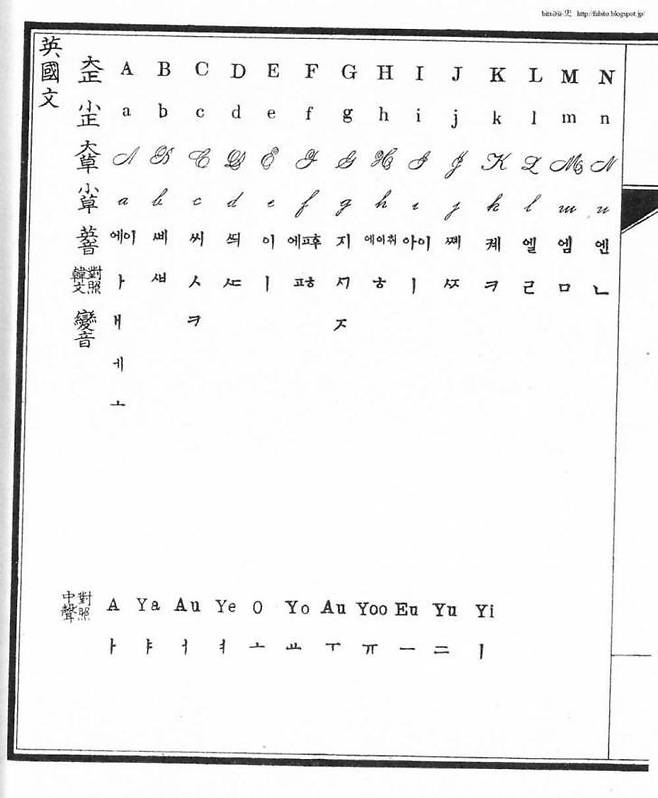 http://fubito.blogspot.jp/
英國文
大正 A B C D E F G H I J K L M N
小正 a b c d e f g h i j k l m n
大草 A B C D E F G H I J K L M N
小草 a b c d e f g h i j k l m n
英音 에이 ᄲᅦ 씨 ᄯᅴ 이 지 에이취 아이 ᄶᅦ 케 엘 엠 엔
韓文對照 ㅏ ㅽ ㅅ ㅼ ㅣ ㅍㅎ ㅺ ㅎ ㅣ ㅾ ㅋ ㄹ ㅁ ㄴ
變音 ㅐ ㅋ ㅈ
ㅔ
ㅗ
中聲對照 A Ya Au Ye O Yo Au Yoo Eu Yu Yi
ㅏ ㅑ ㅓ ㅕ ㅗ ㅛ ㅜ ㅠ ㅡ ᆖ ㅣ